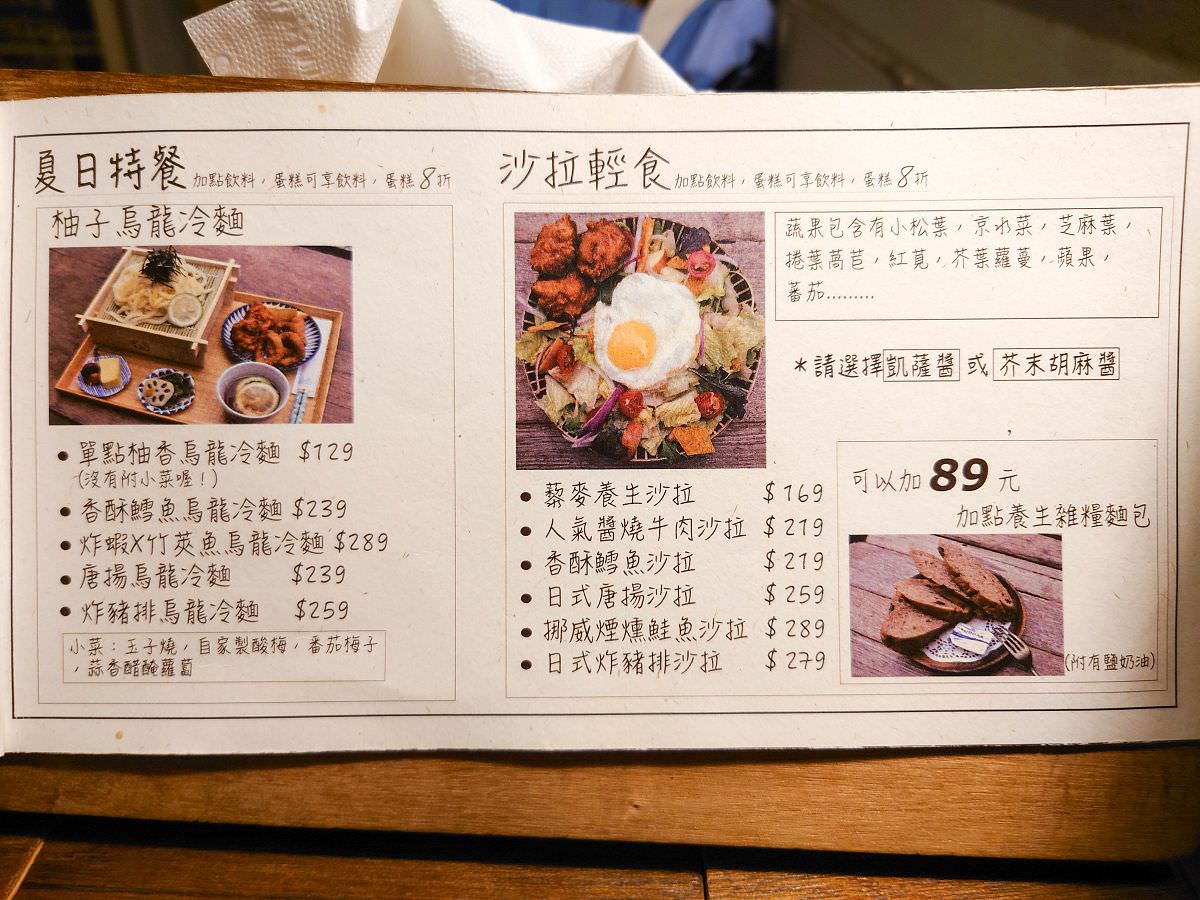 夏日特餐 加點飲料，蛋糕可享飲料，蛋糕8折
柚子烏龍冷麵
• 單點柚香烏龍冷麵 $129
(沒有附小菜喔！)
• 香酥鱈魚烏龍冷麵 $239
• 炸蝦X竹莢魚烏龍冷麵 $289
• 唐揚烏龍冷麵 $239
• 炸豬排烏龍冷麵 $259
小菜：玉子燒，自家製酸梅，番茄梅子
，蒜香醋醃蘿蔔
沙拉輕食 加點飲料，蛋糕可享飲料，蛋糕8折
蔬果包含有小松葉，京水菜，芝麻葉，
捲葉萵苣，紅莧，芥葉蘿蔓，蘋果，
蕃茄.........
*請選擇凱薩醬 或 芥末胡麻醬
• 藜麥養生沙拉 $169
• 人氣醬燒牛肉沙拉 $219
• 香酥鱈魚沙拉 $219
• 日式唐揚沙拉 $259
• 挪威煙燻鮭魚沙拉 $289
• 日式炸豬排沙拉 $279
可以加 89 元
加點養生雜糧麵包
(附有鹽奶油)